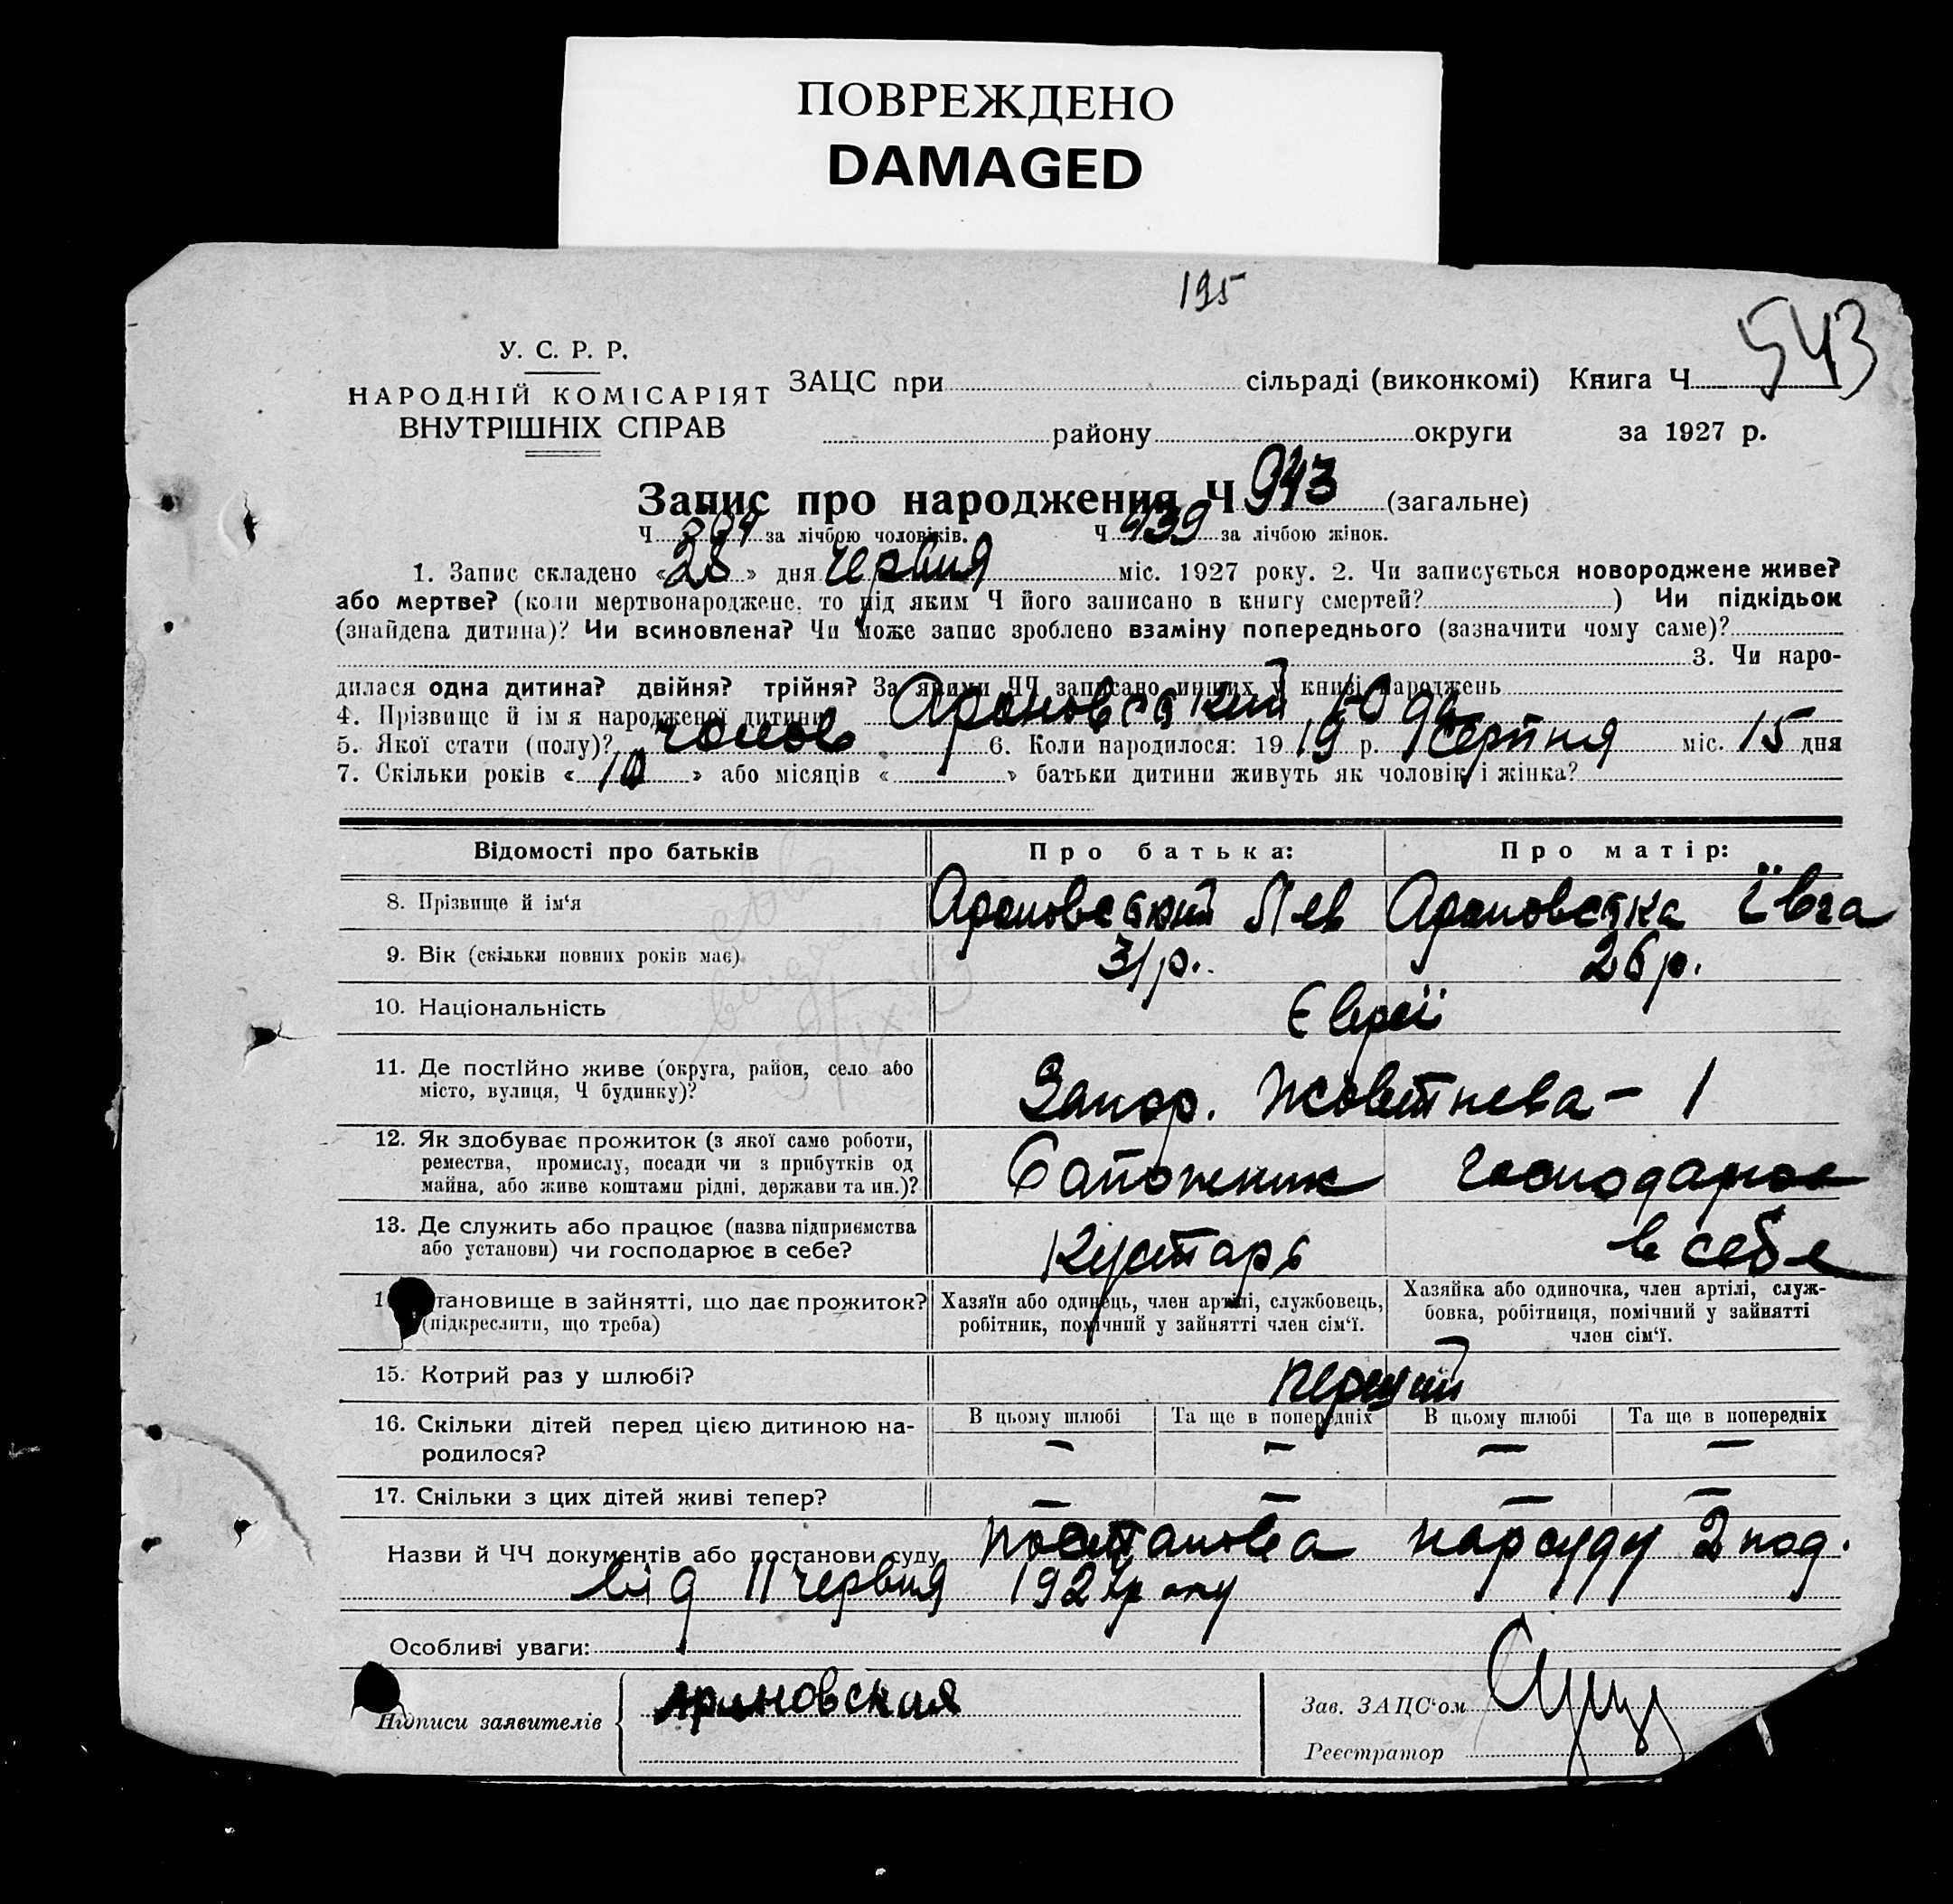 ПОВРЕЖДЕНО
DAMAGED
195
543
У. С. Р. Р.
НАРОДНІЙ КОМІСАРІЯТ
ВНУТРІШНІХ СПРАВ
ЗАЦС при сільраді (виконкомі) Книга Ч
району округи за 1927 р.
Запис про народження Ч 943 (загальне)
Ч за лічбою чоловіків. Ч 439 за лічбою жінок.
1. Запис складено «28» дня червня міс. 1927 року. 2. Чи записується новороджене живе?
або мертве? (коли мертвонароджене, то під яким Ч його записано в книгу смертей? ) Чи підкідьок
(знайдена дитина)? Чи всиновлена? Чи може запис зроблено взаміну попереднього (зазначити чому саме)?
3. Чи наро-
дилася одна дитина? двійня? трійня? За якими ЧЧ записано инших у книзі народжень
4. Прізвище й імя народженої дитини Ароновський
5. Якої стати (полу)? чолов 6. Коли народилося: 1919 р. серпня міс. 15 дня
7. Скільки років «10» або місяців « » батьки дитини живуть як чоловік і жінка?
Відомості про батьків Про батька: Про матір:
8. Прізвище й ім‘я Ароновський Лев Ароновська Ївга
9. Вік (скільки повних років має) 31 р. 26 р.
10. Національність Євреї
11. Де постійно живе (округа, район, село або
місто, вулиця, Ч будинку)? Запор. Жовтнева – 1
12. Як здобуває прожиток (з якої саме роботи,
ремества, промислу, посади чи з прибутків од
майна, або живе коштами рідні, держави та ин.)? Сапожник господарює
13. Де служить або працює (назва підприємства
або установи) чи господарює в себе? Кустарь в себе
тановище в зайнятті, що дає прожиток?
(підкреслити, що треба)
Хазяїн або одинець, член артілі, службовець,
робітник, помічний у зайнятті член сім‘ї.
Хазяйка або одиночка, член артілі, служ-
бовка, робітниця, помічний у зайнятті
член сім‘ї.
15. Котрий раз у шлюбі? перший
16. Скільки дітей перед цією дитиною на-
родилося?
В цьому шлюбі Та ще в попередніх В цьому шлюбі Та ще в попередніх
— — — —
17. Скільки з цих дітей живі тепер? — — — —
Назви й ЧЧ документів або постанови суду постанова нарсуду 2 
від 11 червня 1927 року
Особливі уваги:
Підписи заявителів Ароновская
Зав. ЗАЦС‘ом
Реєстратор